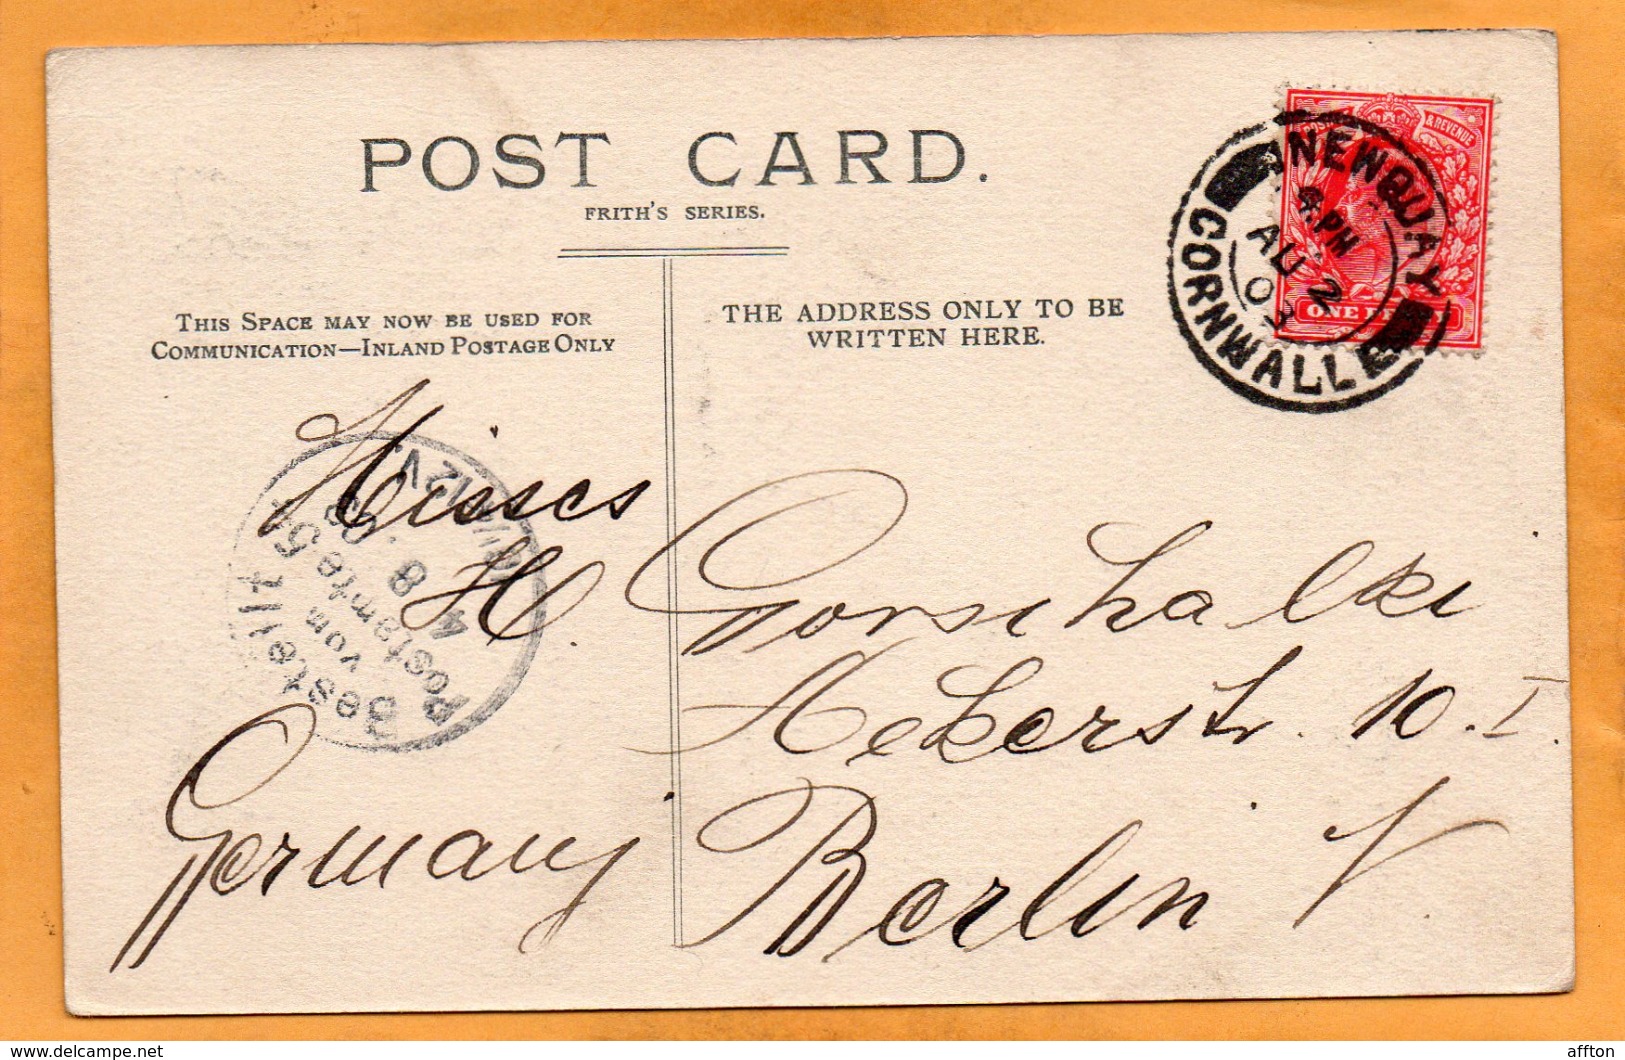 POST CARD.
FRITH'S SERIES.
THIS SPACE MAY NOW BE USED FOR
COMMUNICATION—INLAND POSTAGE ONLY
THE ADDRESS ONLY TO BE
WRITTEN HERE.
& REVENUE
ONE PENNY
NEWQUAY
4 PM
AU 2
CORNWALL
Misses
H. Gorschalki
Ackerstr. 10. I.
Berlin
Germany
Bestellt
vom
Postamte 54
4 8
12V.
delcampe.net
affton